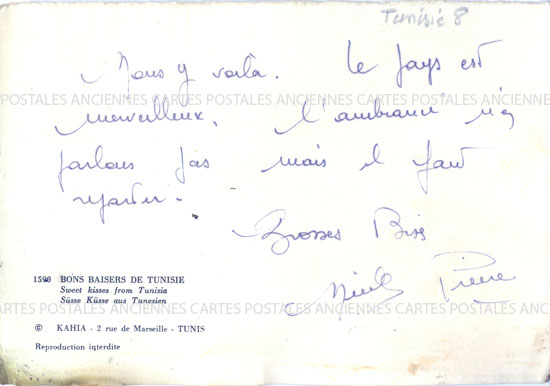 Tunisie 8
Nous y voilà. Le pays est
merveilleux, l'ambiance n'en
parlons pas mais il faut
repartir.
Grosses Bises
Pierre
1590 BONS BAISERS DE TUNISIE
Sweet kisses from Tunisia
Süsse Küsse aus Tunesien
© KAHIA - 2 rue de Marseille - TUNIS
Reproduction interdite
CARTES POSTALES ANCIENNES CARTES POSTALES ANCIENNES CARTES POSTALES
CARTES POSTALES ANCIENNES CARTES POSTALES ANCIENNES CARTES POSTALES